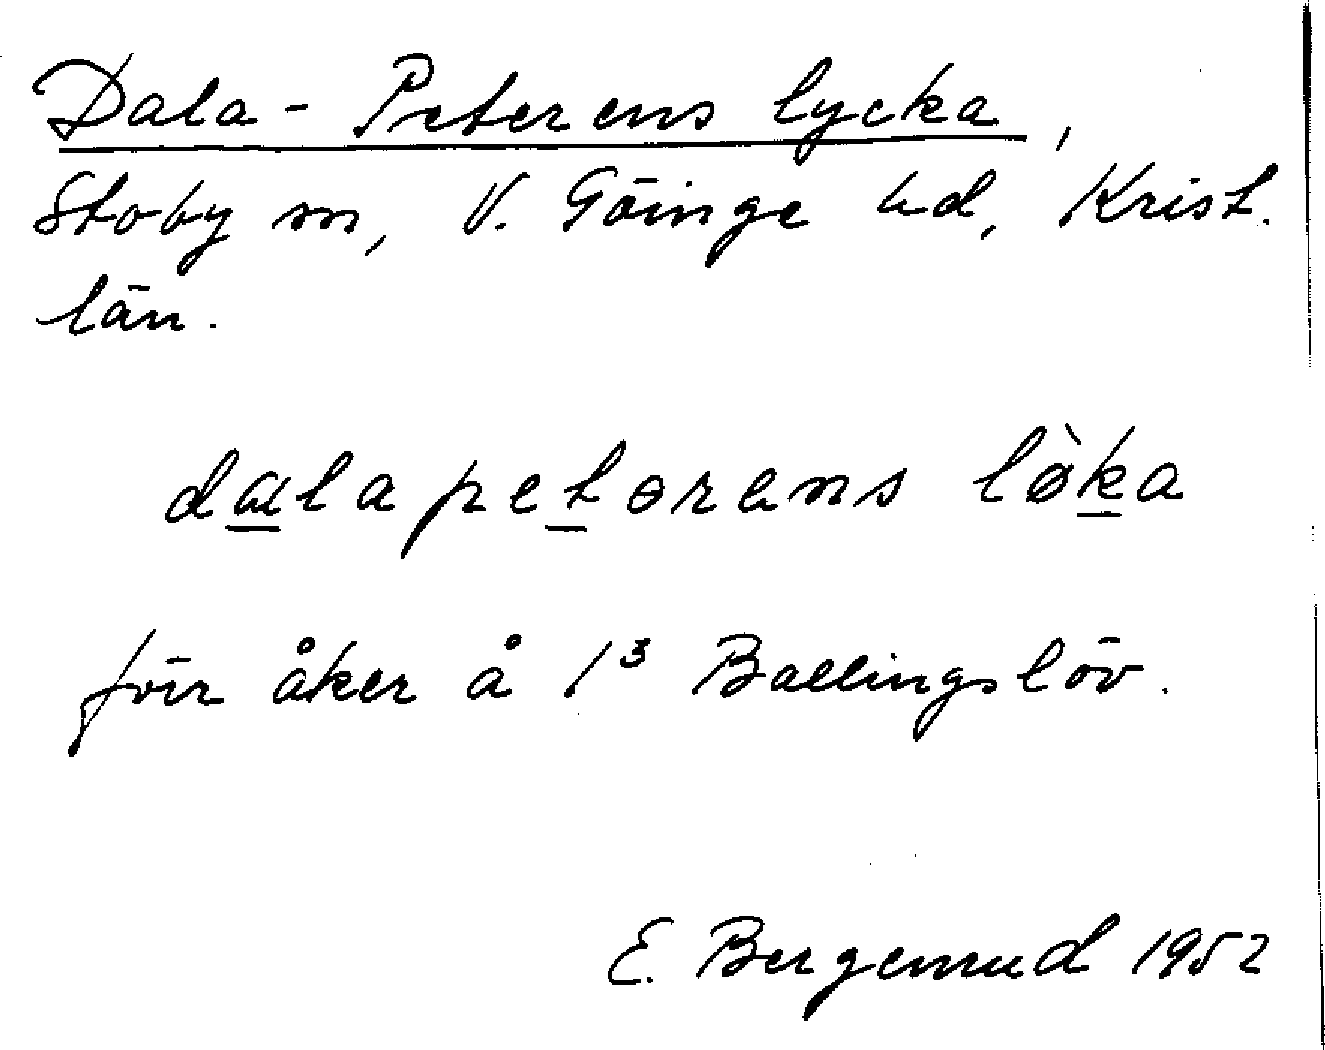 Dala-Peterens lycka,
Stoby sn, V. Göinge hd, Krist.
län.
dalapetərens lø̀ka
för åker å 1³ Ballingslöv.
E. 1952